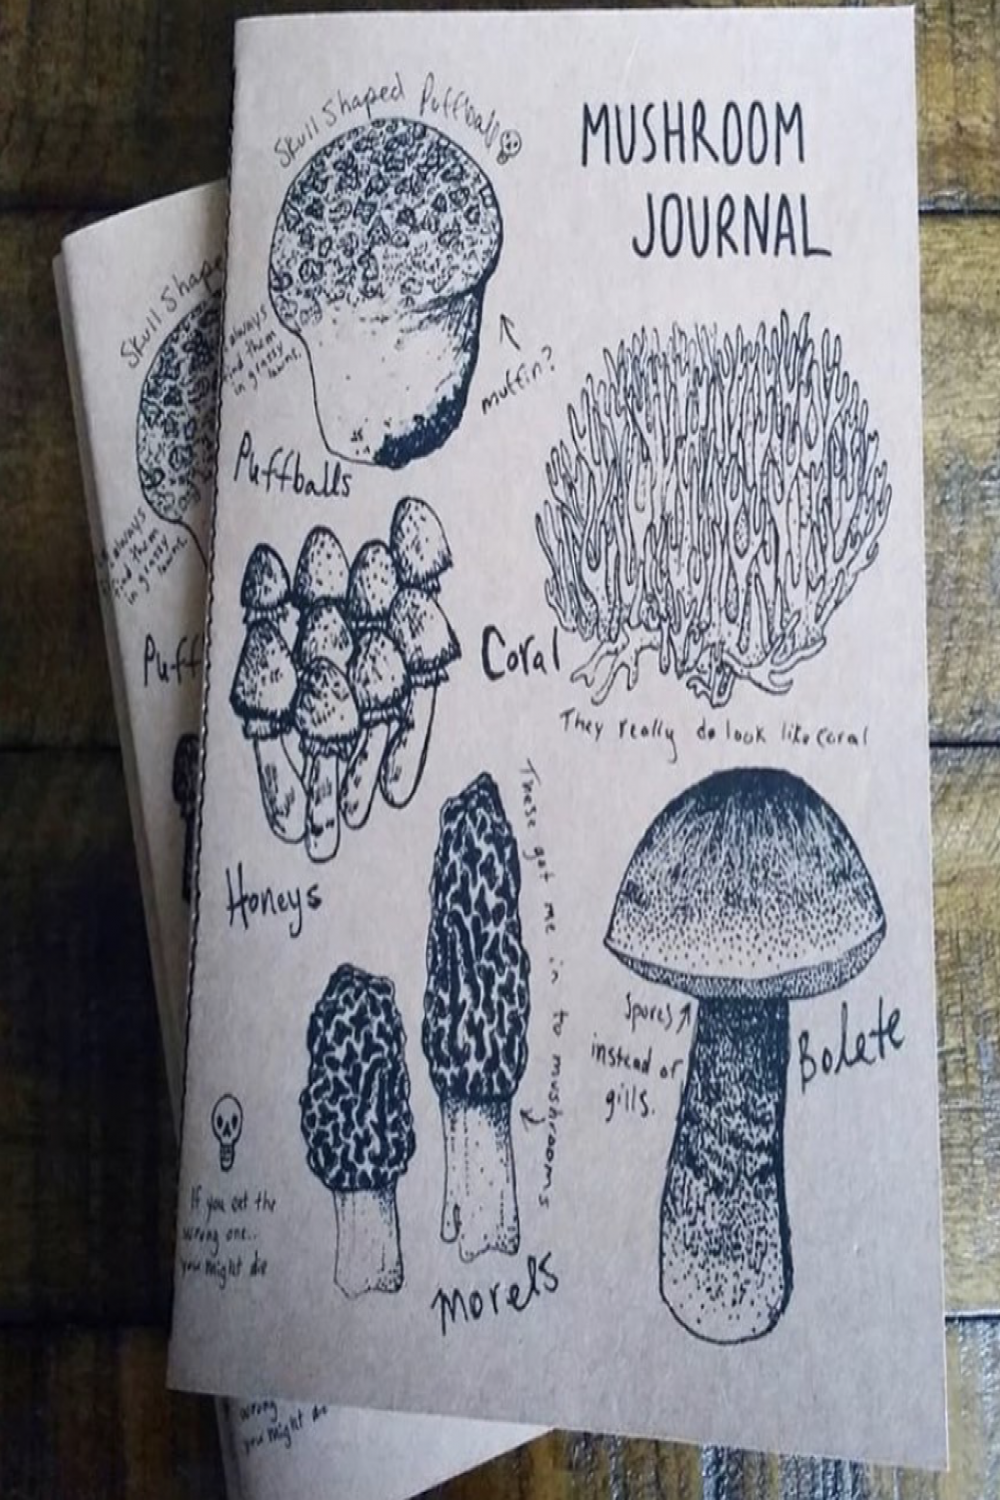 MUSHROOM
JOURNAL
Skull Shaped Puffball
always
find them
in grassy
lawns.
muffin?
Puffballs
Coral
They really do look like coral
Honeys
These got me in to mushrooms
Spores
instead of
gills.
Bolete
If you eat the
wrong one..
you might die
Morels
Skull Shape
always
find them
in grassy
lawns.
Puff
wrong
you might